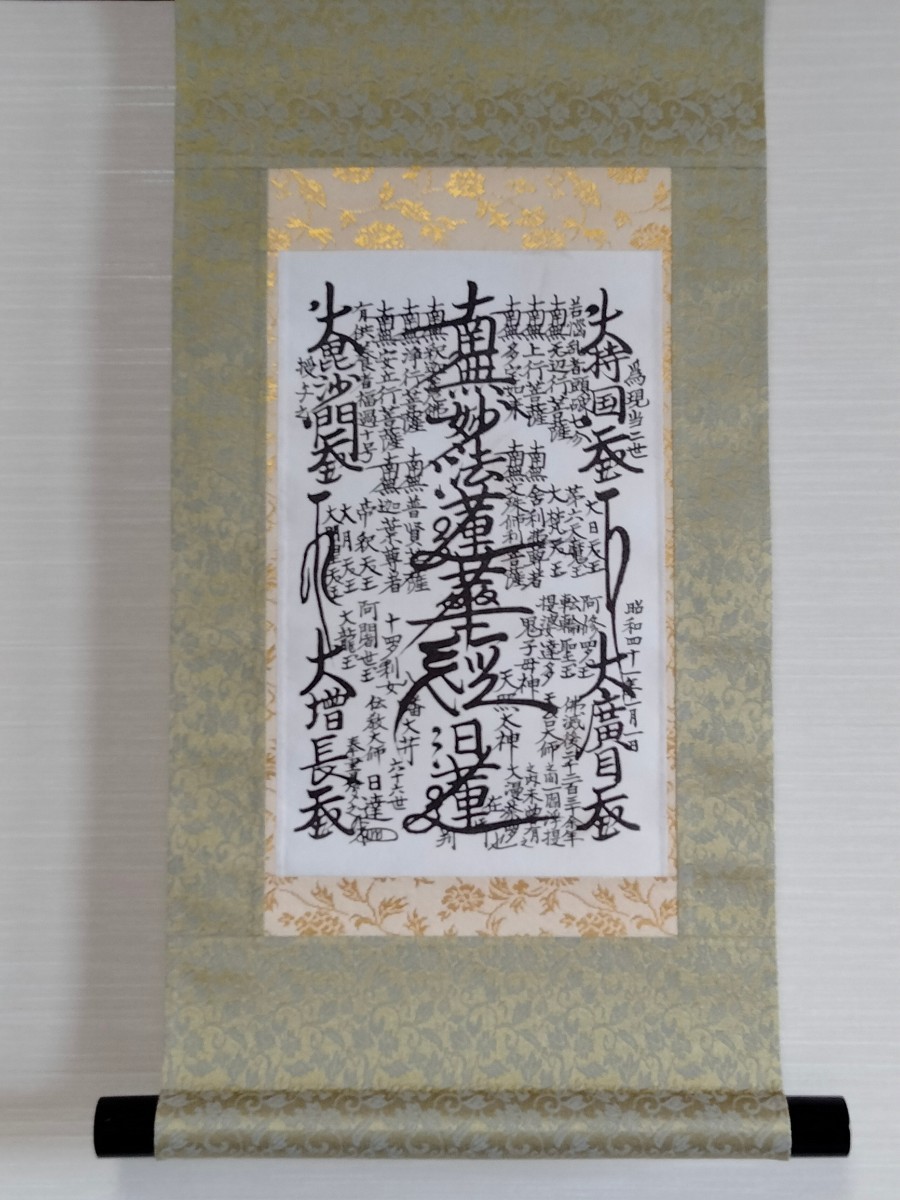 為現当二世
昭和四十一年一月一日
大持国天王
大廣目天王
若悩乱者頭破七分
南無無辺行菩薩
南無上行菩薩
南無多宝如来
大日天王
第六天魔王
大梵天王
南無舎利弗尊者
南無文殊師利菩薩
阿修羅王
転輪聖王
提婆達多
鬼子母神
天照大神
天台大師
佛滅後二千二百三十余年
之間一閻浮提
之内未曾有之
大漫荼羅也
南無妙法蓮華経
日蓮
在
判
南無釈迦牟尼佛
南無浄行菩薩
南無安立行菩薩
有供養者福過十号
南無普賢菩薩
南無迦葉尊者
帝釈天王
大月天王
大明星天王
十羅刹女
阿闍世王
大龍王
八幡大菩薩
伝教大師
六十六世
日達
奉書写之
大毘沙門天王
大増長天王
授与之